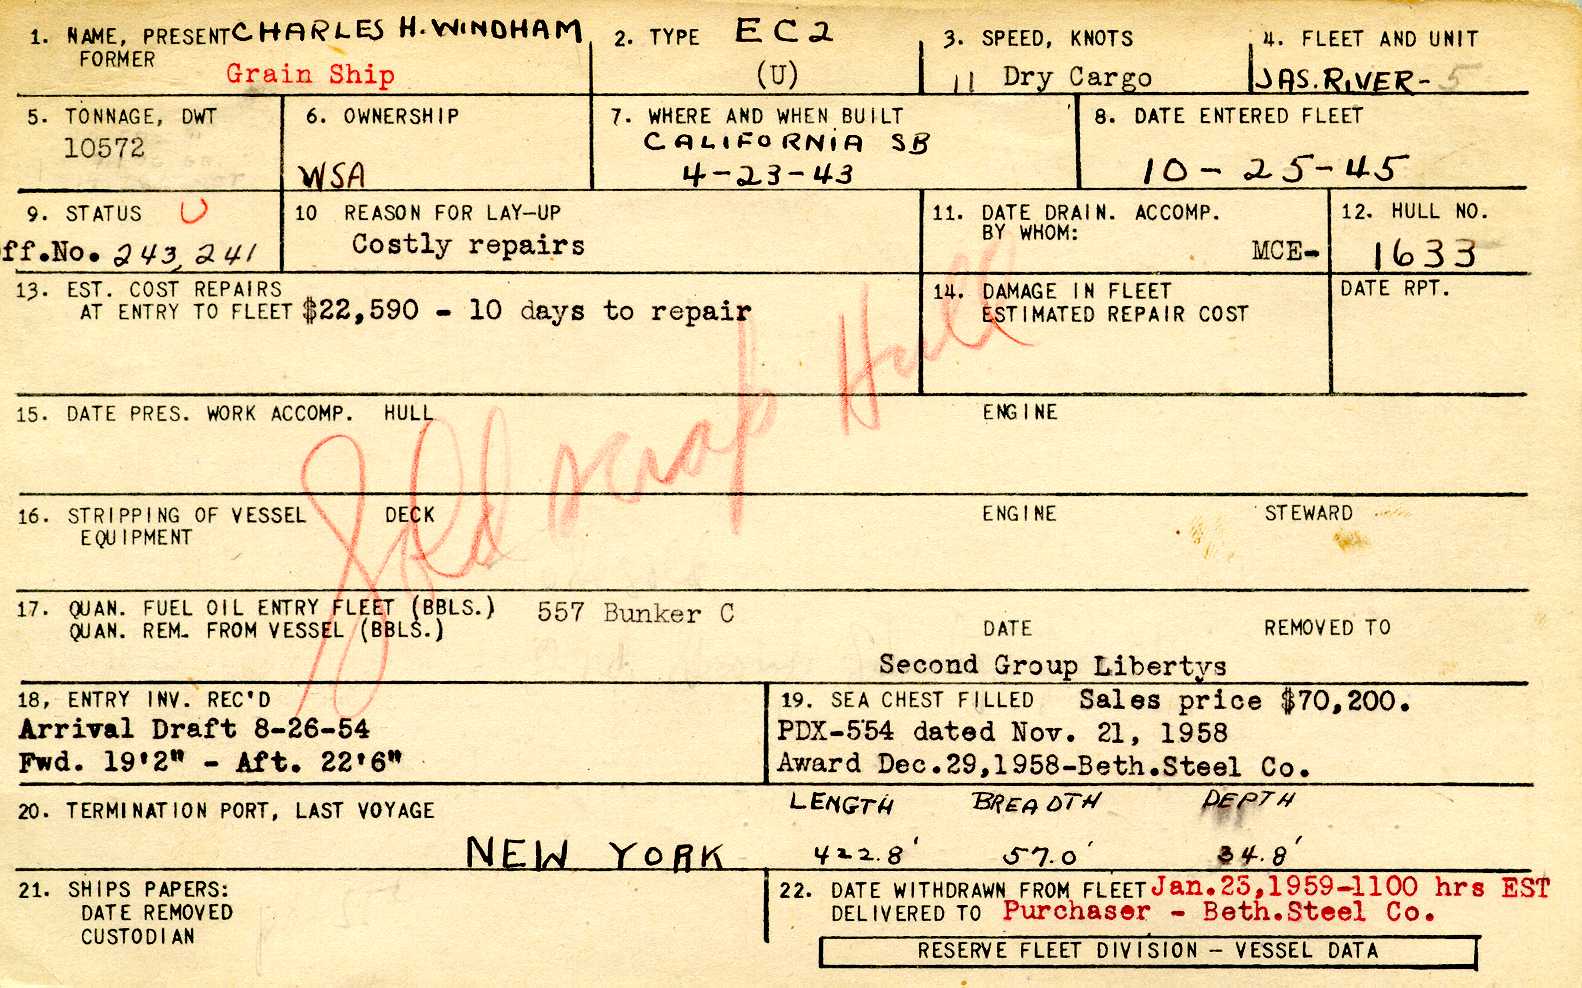 1. NAME, PRESENT CHARLES H. WINDHAM
FORMER
Grain Ship
2. TYPE EC2
(U)
3. SPEED, KNOTS
11 Dry Cargo
4. FLEET AND UNIT
JAS. RIVER - 5
5. TONNAGE, DWT
10572
6. OWNERSHIP
WSA
7. WHERE AND WHEN BUILT
CALIFORNIA SB
4-23-43
8. DATE ENTERED FLEET
10-25-45
9. STATUS U
ff.No. 243,241
10 REASON FOR LAY-UP
Costly repairs
11. DATE DRAIN. ACCOMP.
BY WHOM:
MCE-
12. HULL NO.
1633
13. EST. COST REPAIRS
AT ENTRY TO FLEET $22,590 - 10 days to repair
14. DAMAGE IN FLEET
ESTIMATED REPAIR COST
DATE RPT.
Sold scrap Hull
15. DATE PRES. WORK ACCOMP. HULL ENGINE
16. STRIPPING OF VESSEL DECK ENGINE STEWARD
EQUIPMENT
17. QUAN. FUEL OIL ENTRY FLEET (BBLS.) 557 Bunker C
QUAN. REM. FROM VESSEL (BBLS.) DATE REMOVED TO
Second Group Libertys
18, ENTRY INV. REC'D
Arrival Draft 8-26-54
Fwd. 19'2" - Aft. 22'6"
19. SEA CHEST FILLED Sales price $70,200.
PDX-554 dated Nov. 21, 1958
Award Dec.29,1958-Beth.Steel Co.
20. TERMINATION PORT, LAST VOYAGE
NEW YORK
LENGTH BREADTH DEPTH
422.8' 57.0' 34.8'
21. SHIPS PAPERS:
DATE REMOVED
CUSTODIAN
22. DATE WITHDRAWN FROM FLEET Jan.23,1959-1100 hrs EST
DELIVERED TO Purchaser - Beth.Steel Co.
RESERVE FLEET DIVISION - VESSEL DATA